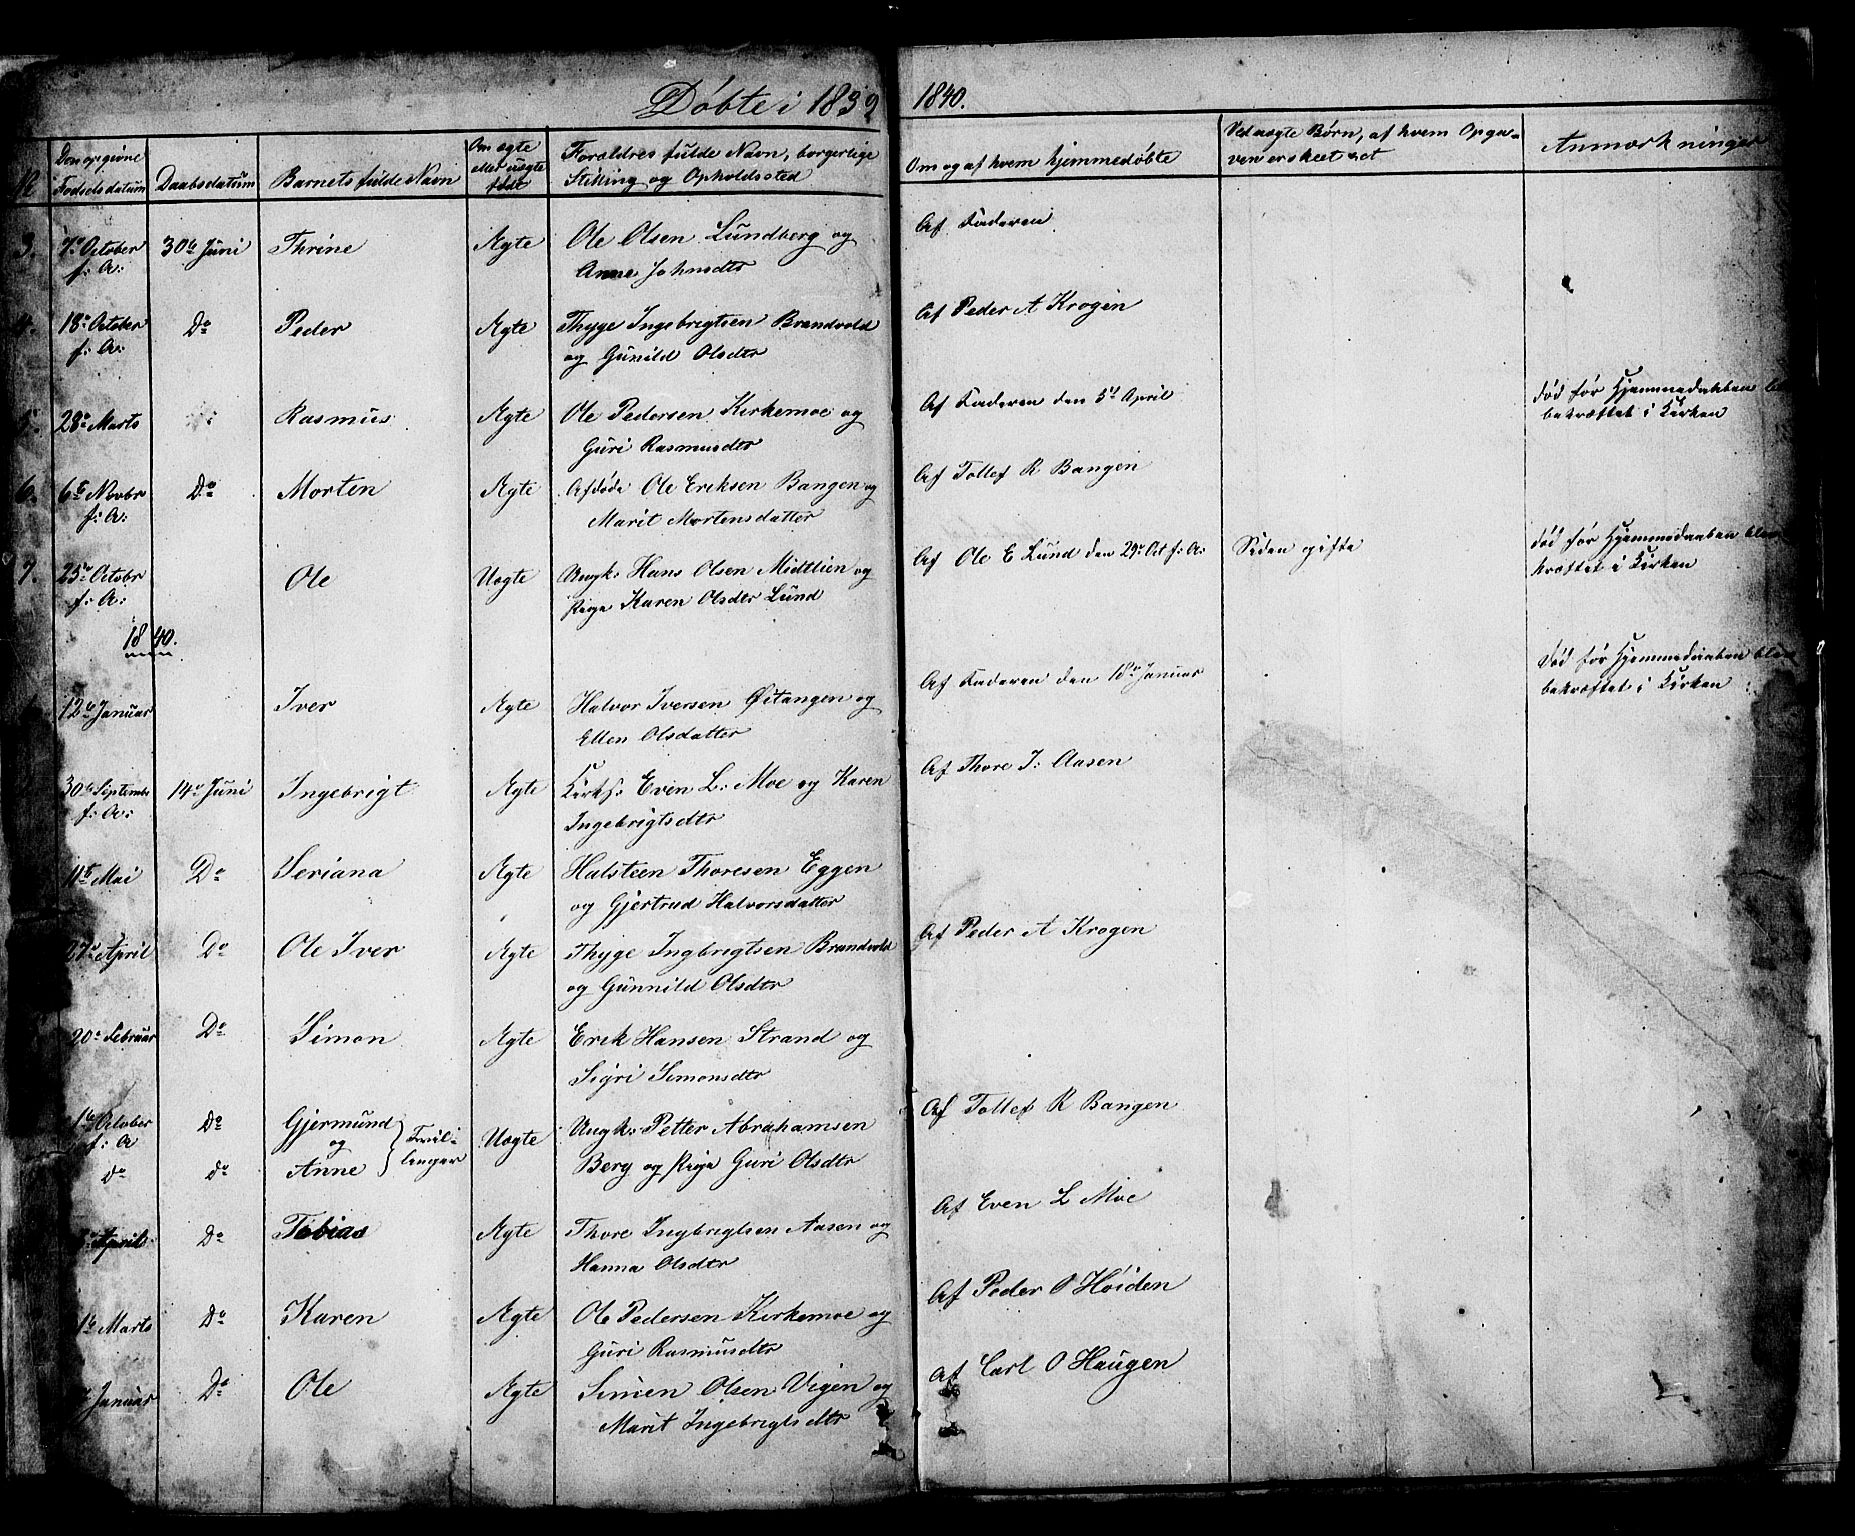 Døbte i 1839
1840.
No
Den opgivne Fødselsdatum
Daabsdatum
Barnets fulde Navn
Om ægte eller uægte født
Forældres fulde Navn, borgerlige Stilling og Opholdssted
Om og af hvem hjemmedøbte
Ved uægte Børn, af hvem Opgaven er skeet
Anmærkninger
3. 7de October 30te Juni Thrine Ægte Ole Olsen Lundberg og Af Faderen
f: A: Anne Johnsdtr
4. 18de October Do Peder Ægte Thyge Ingebrigtsen Brandvold Af Peder A Krogen
f: A: og Gunild Olsdtr
5. 28de Marts Rasmus Ægte Ole Pedersen Kirkemoe og Af Faderen den 5te April død før Hjemmedaaben
Guri Rasmusdtr bekræftet i Kirken
6. 6te Novbr Do Morten Ægte Afdøde Ole Eriksen Bangen og Af Tollef R Bangen
f: A: Marit Mortensdatter
7. 25de Octobr Ole Uægte Ungk: Hans Olsen Midtlien og Af Ole E Lund den 29de Oct f: A: Siden gifte død før Hjemmedaaben blev
f: A: Pige Karen Olsdtr Lund kræftet i Kirken
1840.
12te Januar Iver Ægte Halvor Iversen Øitangen og Af Faderen den 18de Januar død før Hjemmedaaben blev
Ellen Olsdatter bekræftet i Kirken
30te Septembr 14de Juni Ingebrigt Ægte Kirks: Even L: Moe og Karen Af Thore I: Aasen
f: A: Ingebrigtsdtr
11te Mai Do Seriana Ægte Halsteen Thoresen Eggen
og Gjertrud Halvorsdatter
27de April Do Ole Iver Ægte Thyge Ingbrigtsen Brandvold Af Peder A Krogen
og Gunnild Olsdtr
20de Februar Do Simon Ægte Erik Hansen Strand og
Sigri Simonsdtr
1te October Do Gjermund Uægte Ungk: Petter Abrahamsen Af Tollef R Bangen
f: A og Tvillinger
Do do Anne Berg og Pige Guri Olsdtr
April Do Tobias Ægte Thore Ingbrigtsen Aasen og Af Even L Moe
Hanna Olsdtr
1te Marts Do Karen Ægte Ole Pedersen Kirkemoe og Af Peder O Høiden
Guri Rasmusdtr
Januar Do Ole Ægte Simen Olsen Vigen og Af Carl O Haugen
Marit Ingebrigtsdtr